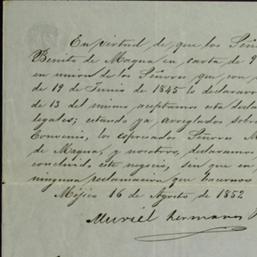 En virtud de que los Seño
Benito de Magua en carta de 9
en union de los Señores que con
de 19 de Junio de 1845 lo declararon
de 13 del mismo aceptamos esta decla
legales; estando ya arreglados sobre
Convenio, los espresados Señores M
de Magua, y nosotros, declaramos
concluido este negocio, sin que en
ninguna reclamacion que hacernos
Méjico 16 de Agosto de 1852
Muriel hermanos